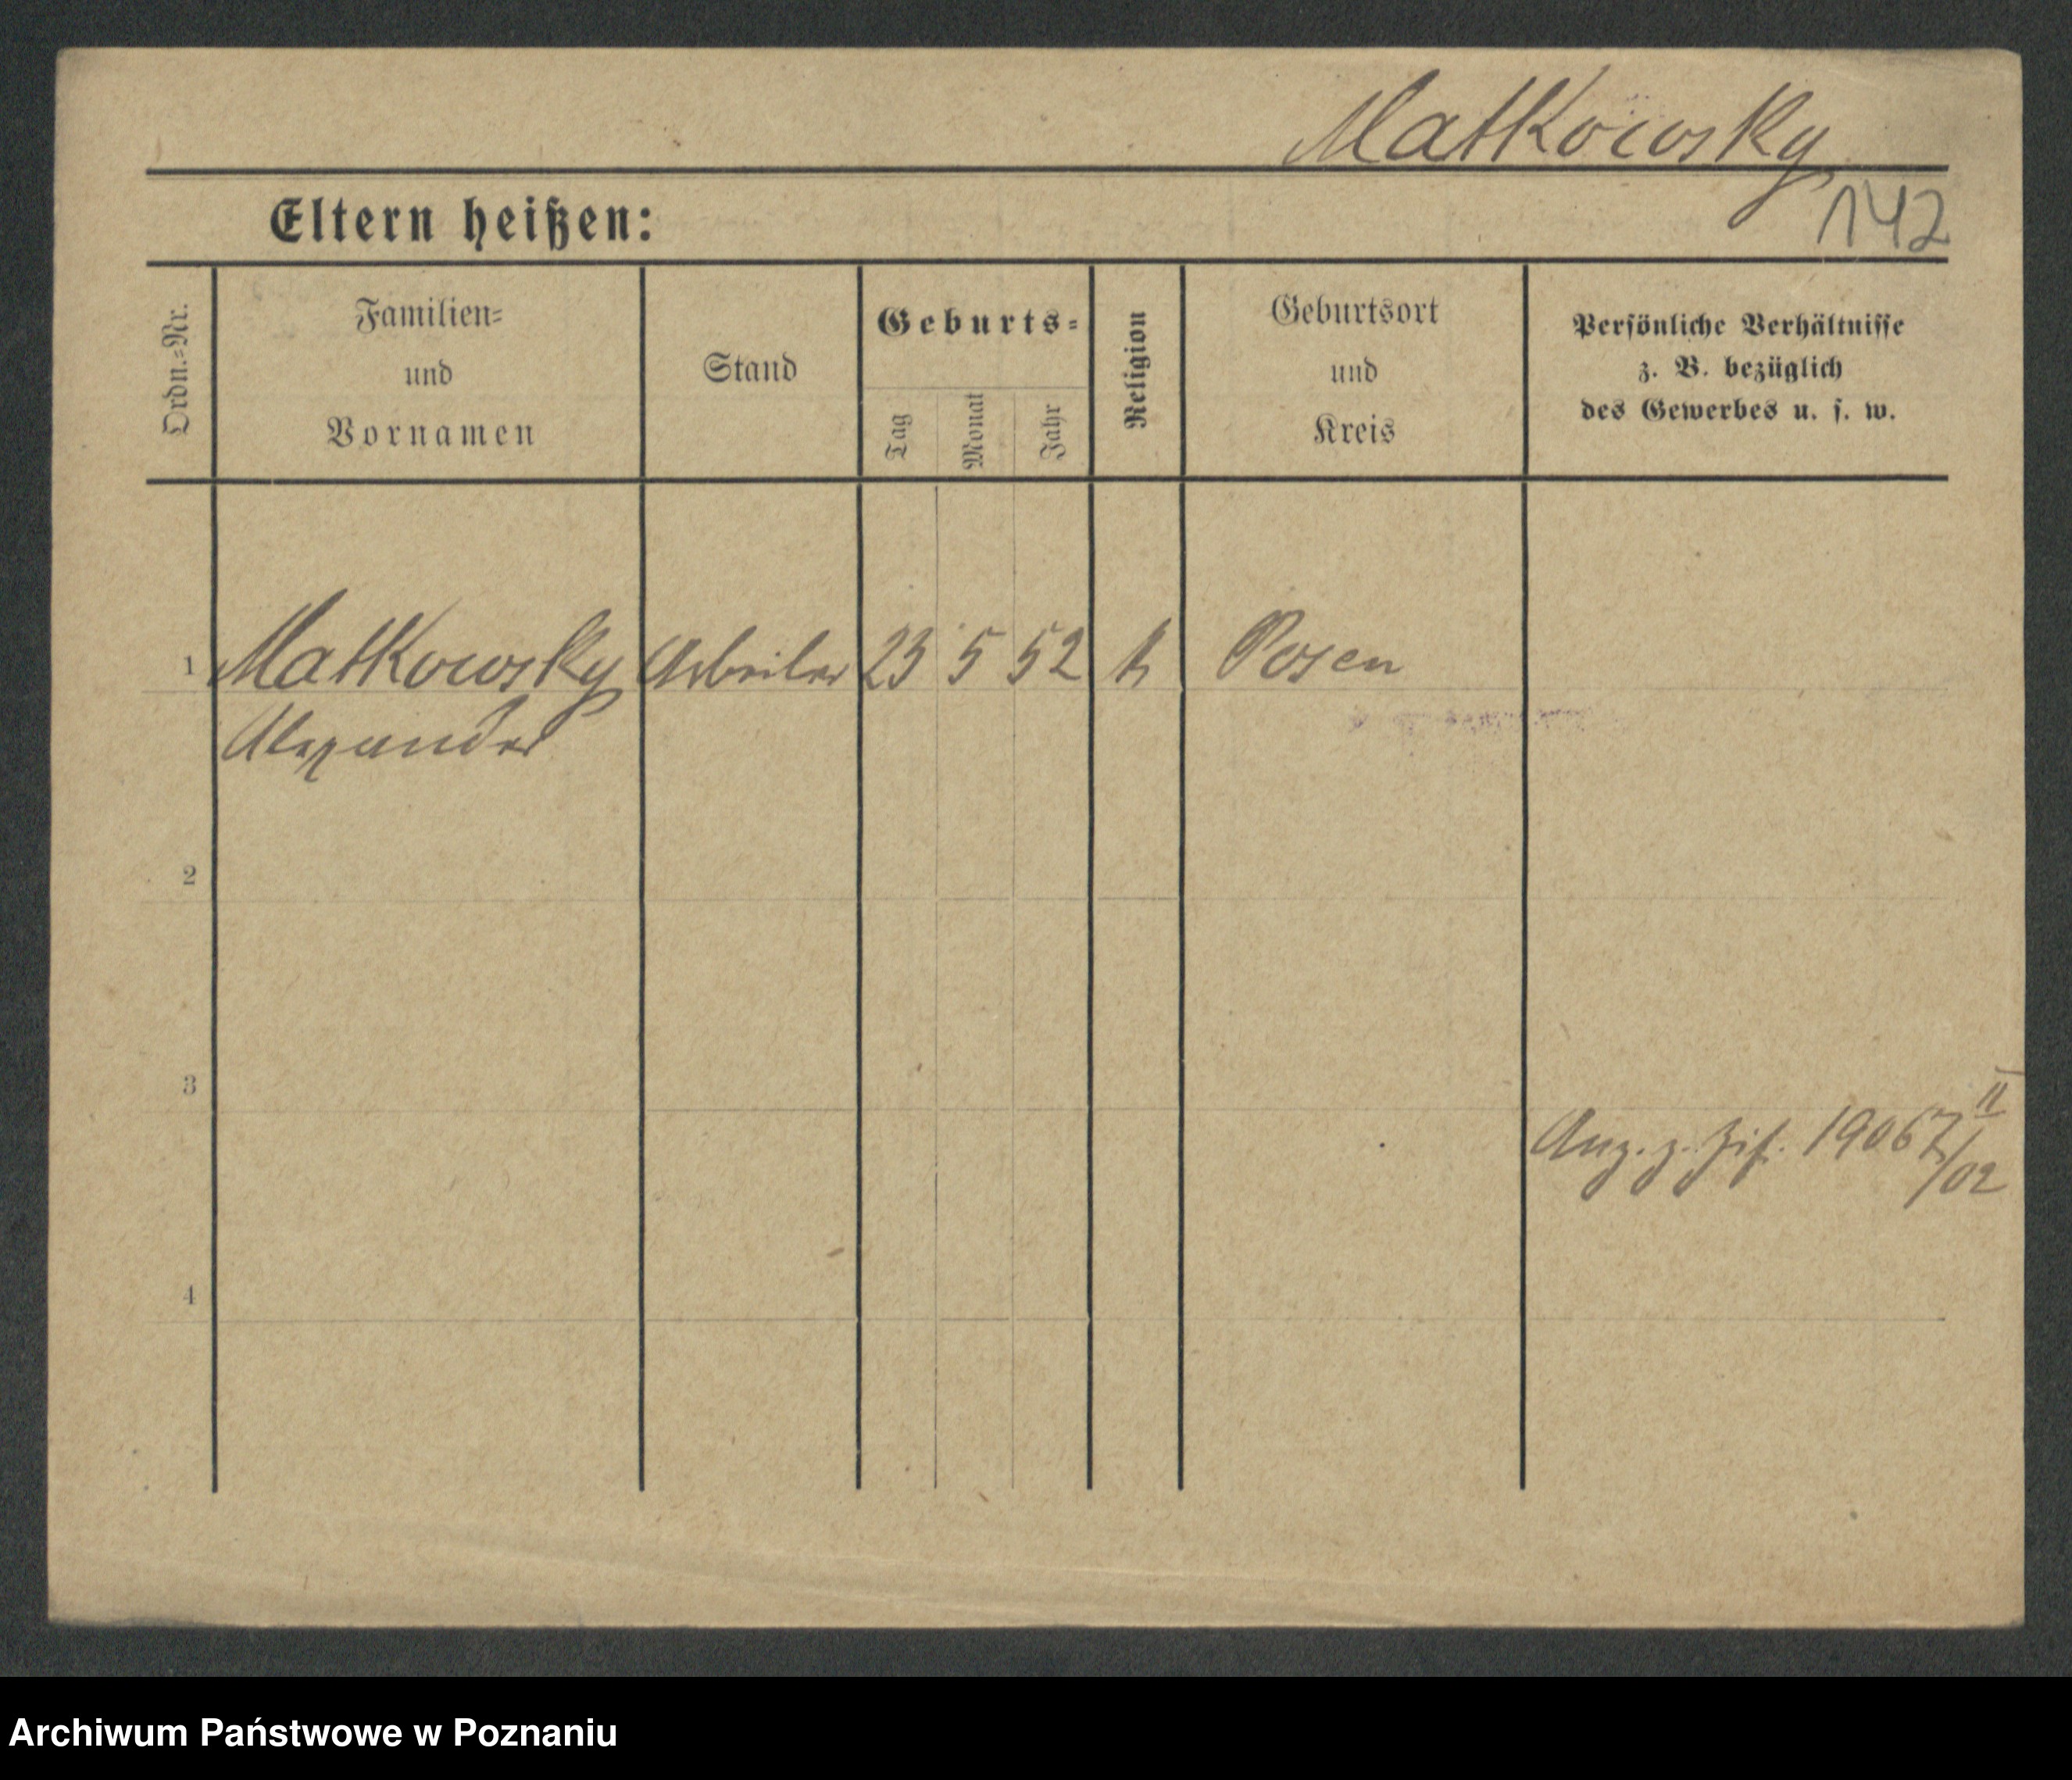 Matkowsky
142
Eltern heißen:
Ordn.=Nr.
Familien=
und
Vornamen
Stand
Geburts=
Tag
Monat
Jahr
Religion
Geburtsort
und
Kreis
Persönliche Verhältnisse
z. B. bezüglich
des Gewerbes u. s. w.
1 Matkowsky Arbeiter 23 5 52 k Posen
Alexander
2
3
II
Anz. z. 19067/02
4
Archiwum Państwowe w Poznaniu